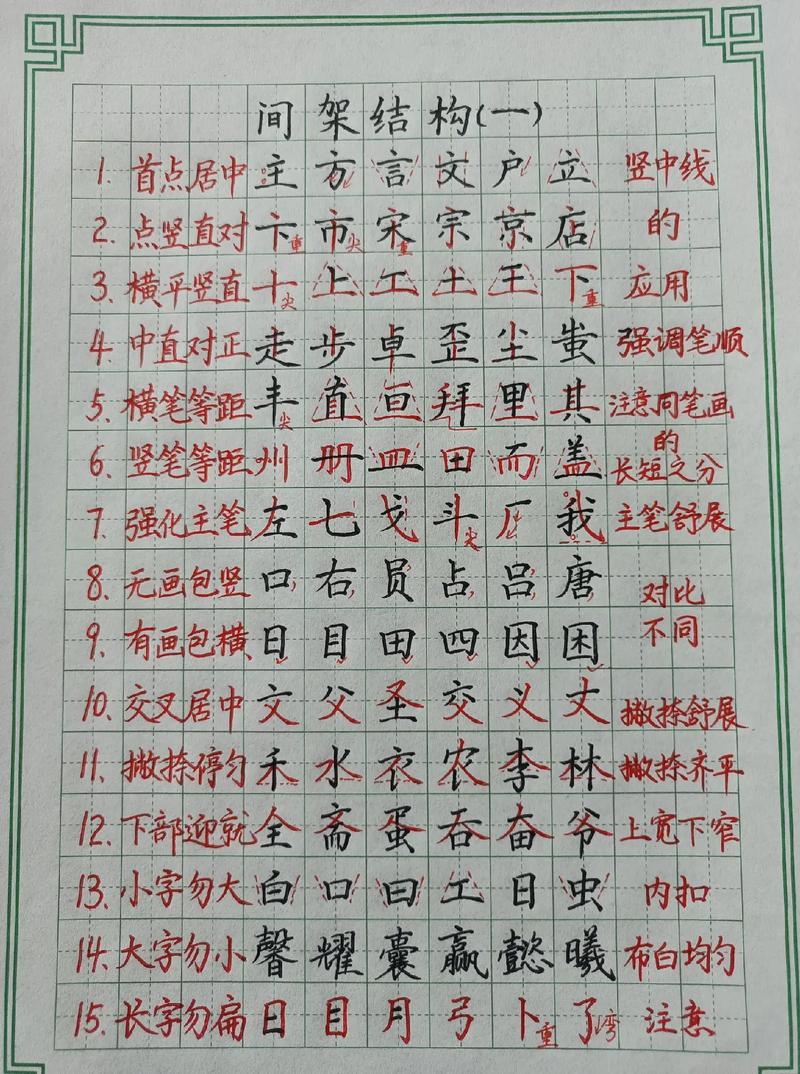 间架结构(一)
1. 首点居中 主方言文户立 竖中线
2. 点竖直对 卞重市尖宋重宗京店 的
3. 横平竖直 十尖上工土王下重 应用
4. 中直对正 走步卓歪尘蚩 强调笔顺
5. 横笔等距 丰尖直亘拜里其 注意同笔画
的
6. 竖笔等距 州册皿田而盖 长短之分
7. 强化主笔 左七戈斗尖厂我 主笔舒展
8. 无画包竖 口右员占吕唐 对比
9. 有画包横 日目田四因困 不同
10. 交叉居中 文父圣交义丈 撇捺舒展
11. 撇捺停匀 禾水衣农李林 撇捺齐平
12. 下部迎就 全斋蛋吞奋爷 上宽下窄
13. 小字勿大 白口曰工日虫 内扣
14. 大字勿小 馨耀囊赢懿曦 布白均匀
15. 长字勿扁 日目月弓卜重了弯 注意